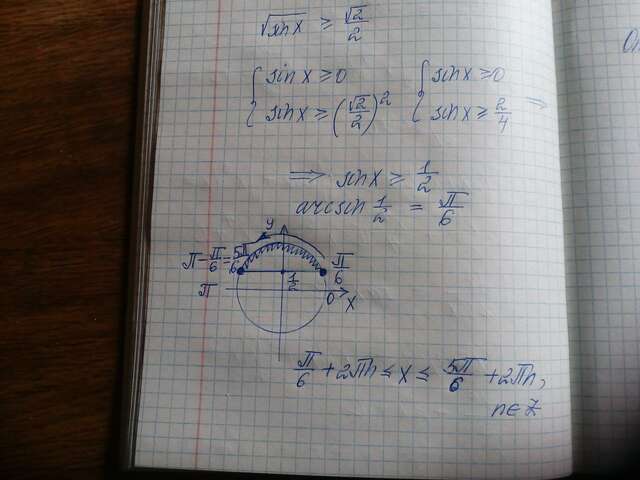 √sin x ≥ √2/2
{ sin x ≥ 0 { sin x ≥ 0
{ sin x ≥ (√2/2)² { sin x ≥ 2/4 ⇒
⇒ sin x ≥ 1/2
arcsin 1/2 = π/6
y
π − π/6 = 5π/6 π/6
1/2
π 0 x
π/6 + 2πn ≤ x ≤ 5π/6 + 2πn,
n ∈ Z